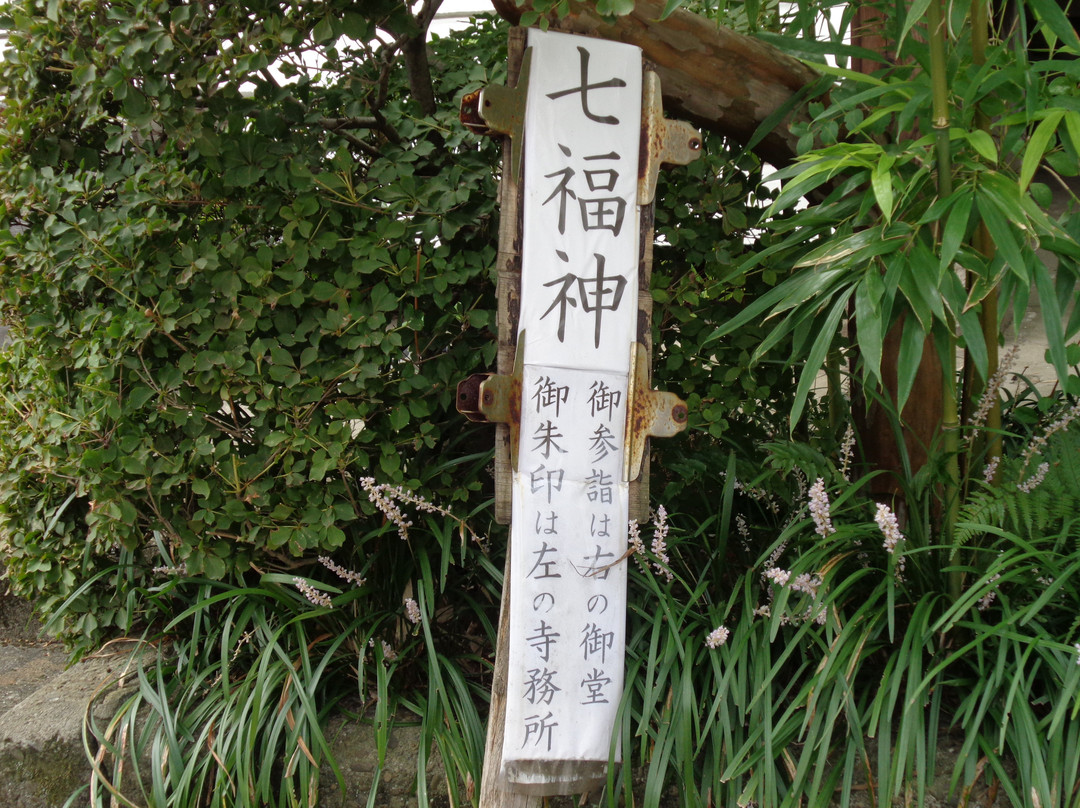 七福神
御参詣は右の御堂
御朱印は左の寺務所